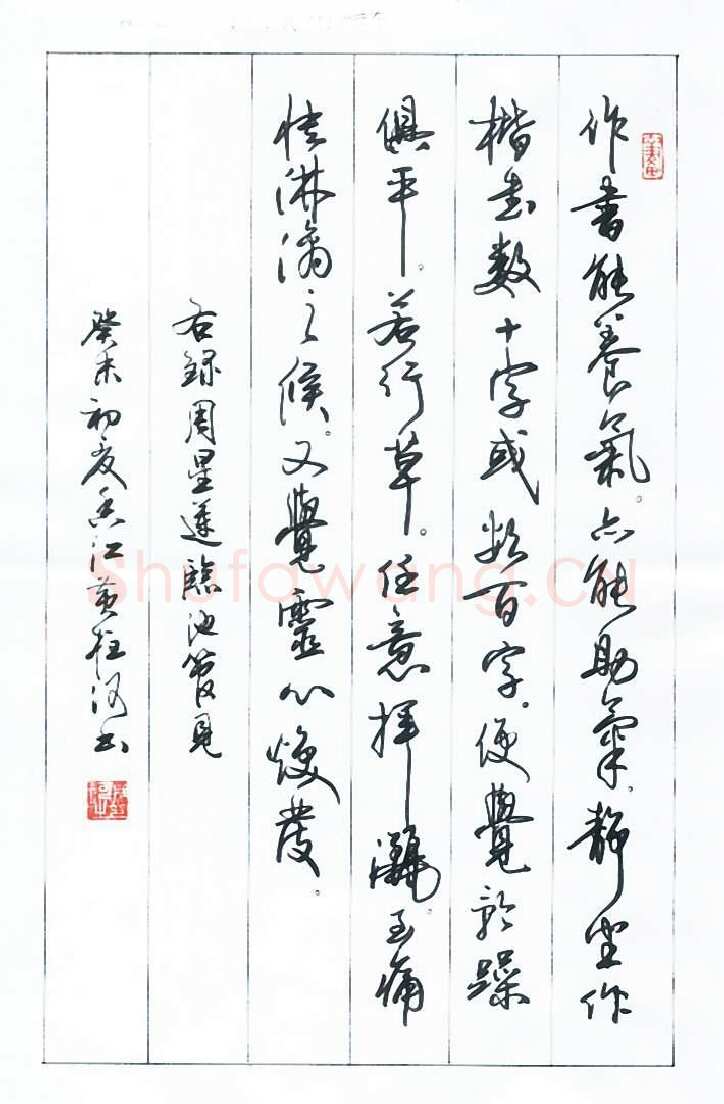 作書能養氣。亦能助氣。靜坐作
楷書數十字或數百字。便覺矜躁
俱平。若行草。任意揮灑。至痛
快淋漓之候。又覺靈心煥發。
右録周星蓮臨池管見
癸未初夏香江黃柱河書
Shufawang.cn